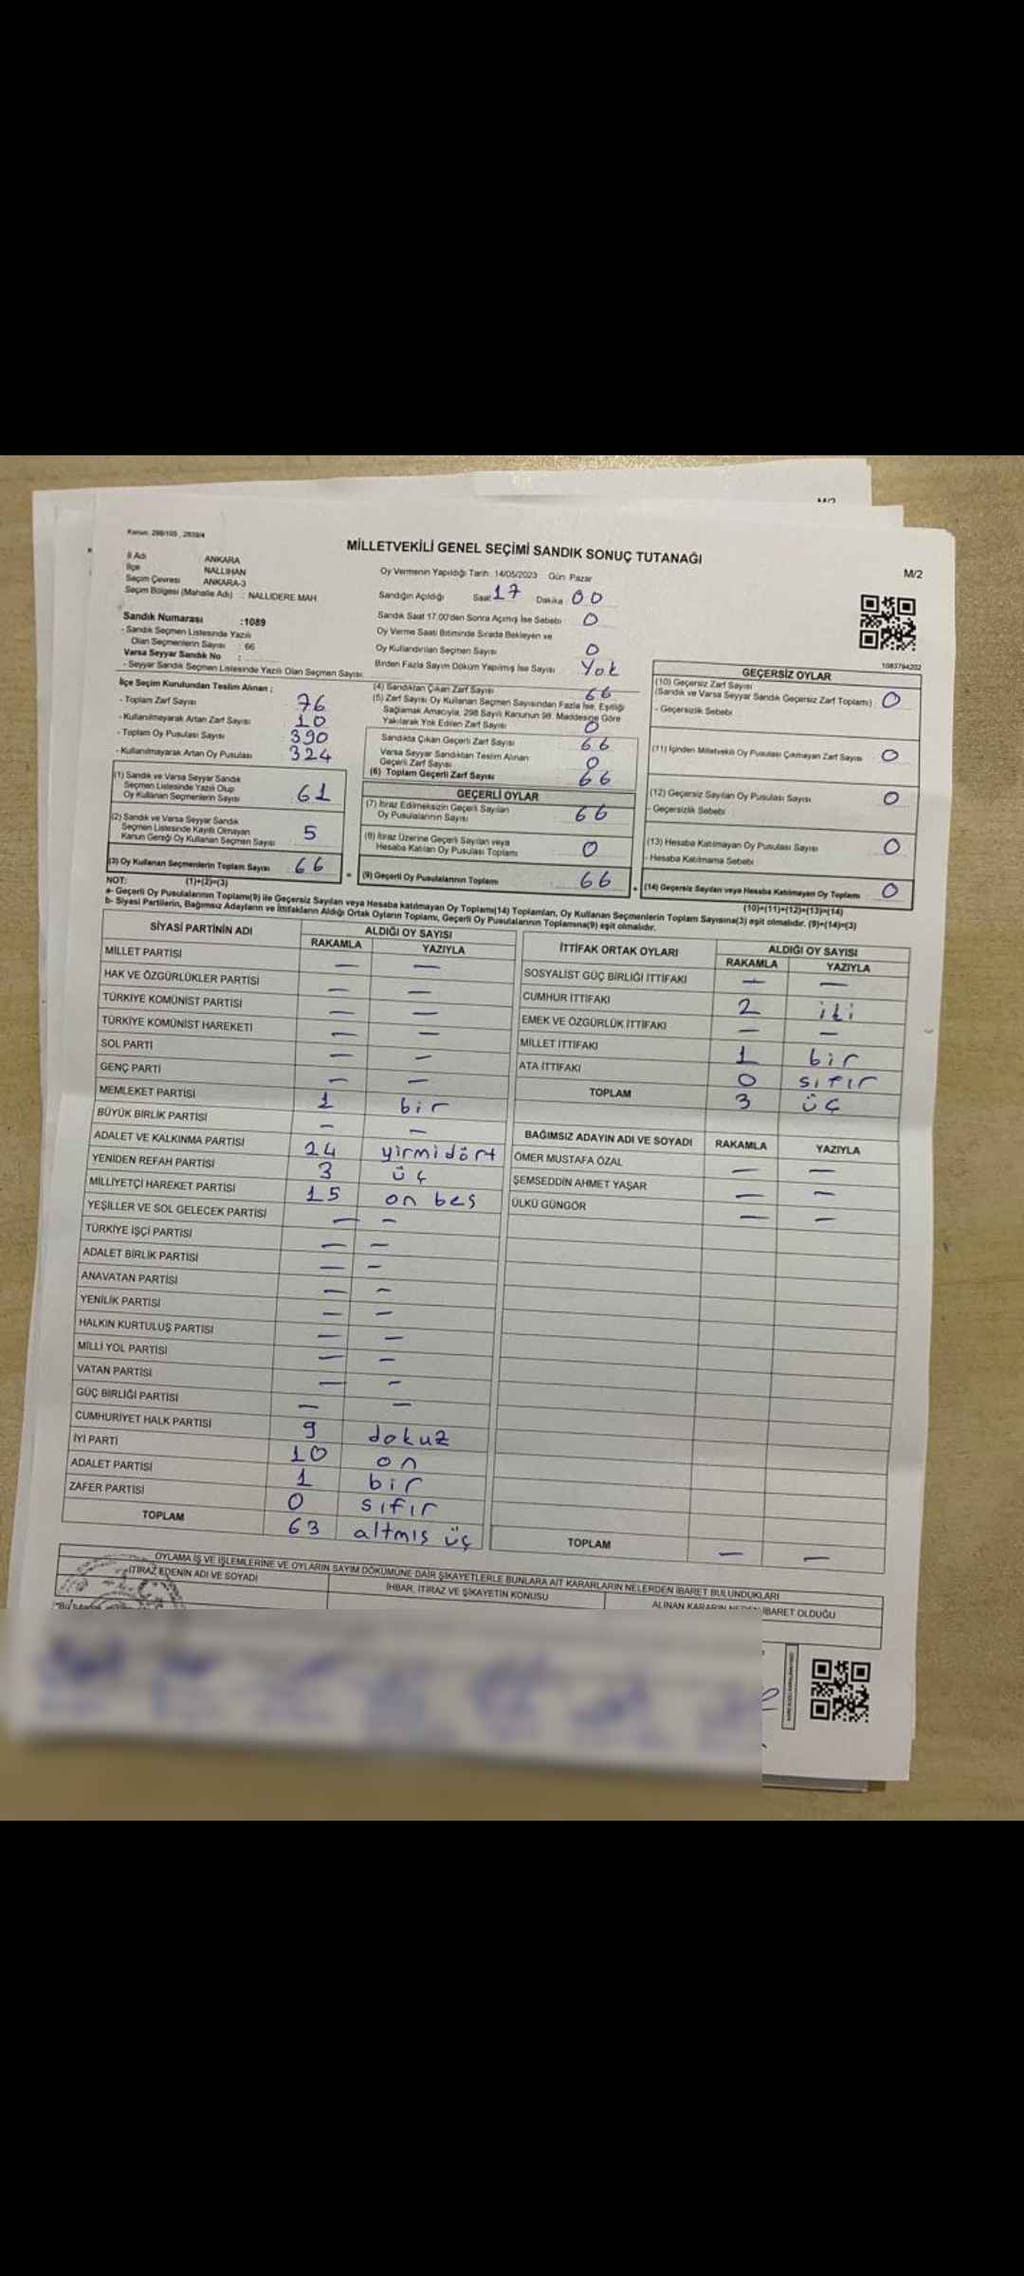 M/2
Kanun: 298/105 , 2839/4
MİLLETVEKİLİ GENEL SEÇİMİ SANDIK SONUÇ TUTANAĞI
M/2
İl Adı ANKARA
İlçe NALLIHAN
Seçim Çevresi ANKARA-3
Seçim Bölgesi (Mahalle Adı) : NALLIDERE MAH.
Oy Vermenin Yapıldığı Tarih: 14/05/2023 Gün: Pazar
Sandığın Açıldığı Saat 17 Dakika 00
Sandık Saat 17.00'den Sonra Açılmış İse Sebebi 0
Oy Verme Saati Bitiminde Sırada Bekleyen ve
Oy Kullandırılan Seçmen Sayısı 0
Birden Fazla Sayım Döküm Yapılmış İse Sayısı Yok
Sandık Numarası :1089
- Sandık Seçmen Listesinde Yazılı
Olan Seçmenlerin Sayısı : 66
Varsa Seyyar Sandık No :
- Seyyar Sandık Seçmen Listesinde Yazılı Olan Seçmen Sayısı
İlçe Seçim Kurulundan Teslim Alınan ;
- Toplam Zarf Sayısı 76
- Kullanılmayarak Artan Zarf Sayısı 10
- Toplam Oy Pusulası Sayısı 390
- Kullanılmayarak Artan Oy Pusulası 324
(1) Sandık ve Varsa Seyyar Sandık
Seçmen Listesinde Yazılı Olup
Oy Kullanan Seçmenlerin Sayısı 61
(2) Sandık ve Varsa Seyyar Sandık
Seçmen Listesinde Kayıtlı Olmayan
Kanun Gereği Oy Kullanan Seçmen Sayısı 5
(3) Oy Kullanan Seçmenlerin Toplam Sayısı 66
(1)+(2)=(3)
(4) Sandıktan Çıkan Zarf Sayısı 66
(5) Zarf Sayısı Oy Kullanan Seçmen Sayısından Fazla İse, Eşitliği
Sağlamak Amacıyla, 298 Sayılı Kanunun 98. Maddesine Göre
Yakılarak Yok Edilen Zarf Sayısı 0
Sandıkta Çıkan Geçerli Zarf Sayısı 66
Varsa Seyyar Sandıktan Teslim Alınan
Geçerli Zarf Sayısı 0
(6) Toplam Geçerli Zarf Sayısı 66
GEÇERLİ OYLAR
(7) İtiraz Edilmeksizin Geçerli Sayılan
Oy Pusulalarının Sayısı 66
(8) İtiraz Üzerine Geçerli Sayılan veya
Hesaba Katılan Oy Pusulası Toplamı 0
= (9) Geçerli Oy Pusulalarının Toplamı 66
1083794202
GEÇERSİZ OYLAR
(10) Geçersiz Zarf Sayısı
(Sandık ve Varsa Seyyar Sandık Geçersiz Zarf Toplamı) 0
- Geçersizlik Sebebi
(11) İçinden Milletvekili Oy Pusulası Çıkmayan Zarf Sayısı 0
(12) Geçersiz Sayılan Oy Pusulası Sayısı 0
- Geçersizlik Sebebi
(13) Hesaba Katılmayan Oy Pusulası Sayısı 0
- Hesaba Katılmama Sebebi
+ (14) Geçersiz Sayılan veya Hesaba Katılmayan Oy Toplamı 0
(10)+(11)+(12)+(13)=(14)
NOT:
a- Geçerli Oy Pusulalarının Toplamı(9) ile Geçersiz Sayılan veya Hesaba katılmayan Oy Toplamı(14) Toplamları, Oy Kullanan Seçmenlerin Toplam Sayısına(3) eşit olmalıdır. (9)+(14)=(3)
b- Siyasi Partilerin, Bağımsız Adayların ve İttifakların Aldığı Ortak Oyların Toplamı, Geçerli Oy Pusulalarının Toplamına(9) eşit olmalıdır.
SİYASİ PARTİNİN ADI ALDIĞI OY SAYISI
RAKAMLA YAZIYLA
MİLLET PARTİSİ — —
HAK VE ÖZGÜRLÜKLER PARTİSİ — —
TÜRKİYE KOMÜNİST PARTİSİ — —
TÜRKİYE KOMÜNİST HAREKETİ — —
SOL PARTİ — —
GENÇ PARTİ — —
MEMLEKET PARTİSİ 1 bir
BÜYÜK BİRLİK PARTİSİ — —
ADALET VE KALKINMA PARTİSİ 24 yirmidört
YENİDEN REFAH PARTİSİ 3 üç
MİLLİYETÇİ HAREKET PARTİSİ 15 on beş
YEŞİLLER VE SOL GELECEK PARTİSİ — —
TÜRKİYE İŞÇİ PARTİSİ — —
ADALET BİRLİK PARTİSİ — —
ANAVATAN PARTİSİ — —
YENİLİK PARTİSİ — —
HALKIN KURTULUŞ PARTİSİ — —
MİLLİ YOL PARTİSİ — —
VATAN PARTİSİ — —
GÜÇ BİRLİĞİ PARTİSİ — —
CUMHURİYET HALK PARTİSİ 9 dokuz
İYİ PARTİ 10 on
ADALET PARTİSİ 1 bir
ZAFER PARTİSİ 0 sıfır
TOPLAM 63 altmış üç
İTTİFAK ORTAK OYLARI ALDIĞI OY SAYISI
RAKAMLA YAZIYLA
SOSYALİST GÜÇ BİRLİĞİ İTTİFAKI — —
CUMHUR İTTİFAKI 2 iki
EMEK VE ÖZGÜRLÜK İTTİFAKI — —
MİLLET İTTİFAKI 1 bir
ATA İTTİFAKI 0 sıfır
TOPLAM 3 üç
BAĞIMSIZ ADAYIN ADI VE SOYADI RAKAMLA YAZIYLA
ÖMER MUSTAFA ÖZAL — —
ŞEMSEDDİN AHMET YAŞAR — —
ÜLKÜ GÜNGÖR — —
TOPLAM — —
OYLAMA İŞ VE İŞLEMLERİNE VE OYLARIN SAYIM DÖKÜMÜNE DAİR ŞİKAYETLERLE BUNLARA AİT KARARLARIN NELERDEN İBARET BULUNDUKLARI
İTİRAZ EDENİN ADI VE SOYADI İHBAR, İTİRAZ VE ŞİKAYETİN KONUSU ALINAN KARARIN NEDEN İBARET OLDUĞU